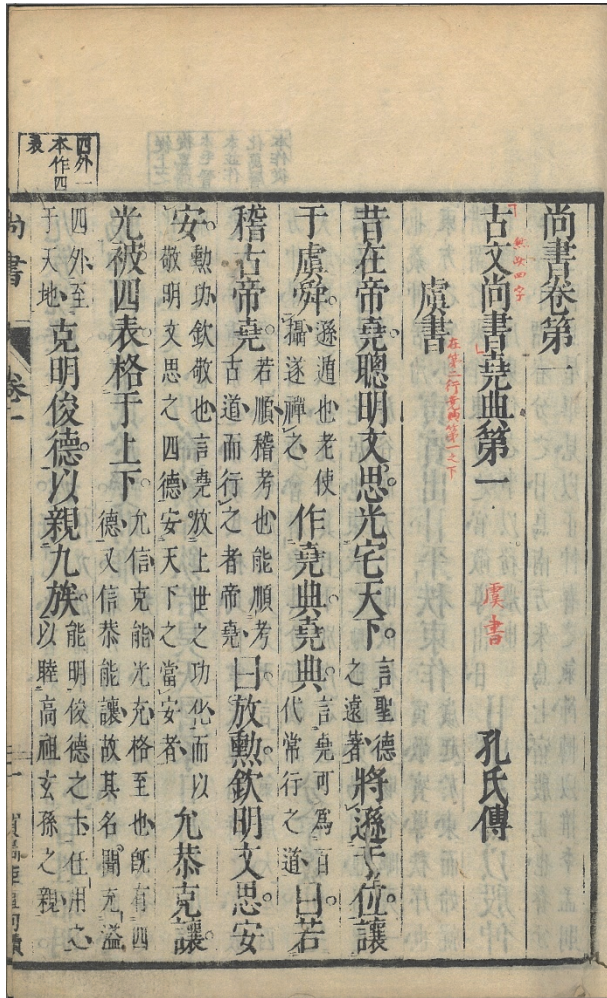 尚書卷第一
古文尚書堯典第一 虞書 孔氏傳
虞書 在第二行堯典第一之下
昔在帝堯聰明文思光宅天下 言聖德之遠著 將遜于位讓
于虞舜 遜遁也老使攝遂禪之 作堯典堯典 言堯可爲百代常行之道 曰若
稽古帝堯 若順稽考也能順考古道而行之者帝堯 曰放勳欽明文思安
安 勳功欽敬也言堯放上世之功化而以敬明文思之四德安天下之當安者 允恭克讓
光被四表格于上下 允信克能光充格至也既有四德又信恭能讓故其名聞充溢
四外至于天地 克明俊德以親九族 能明俊德之士任用之以睦高祖玄孫之親
四外一本作四表
尚書
卷一